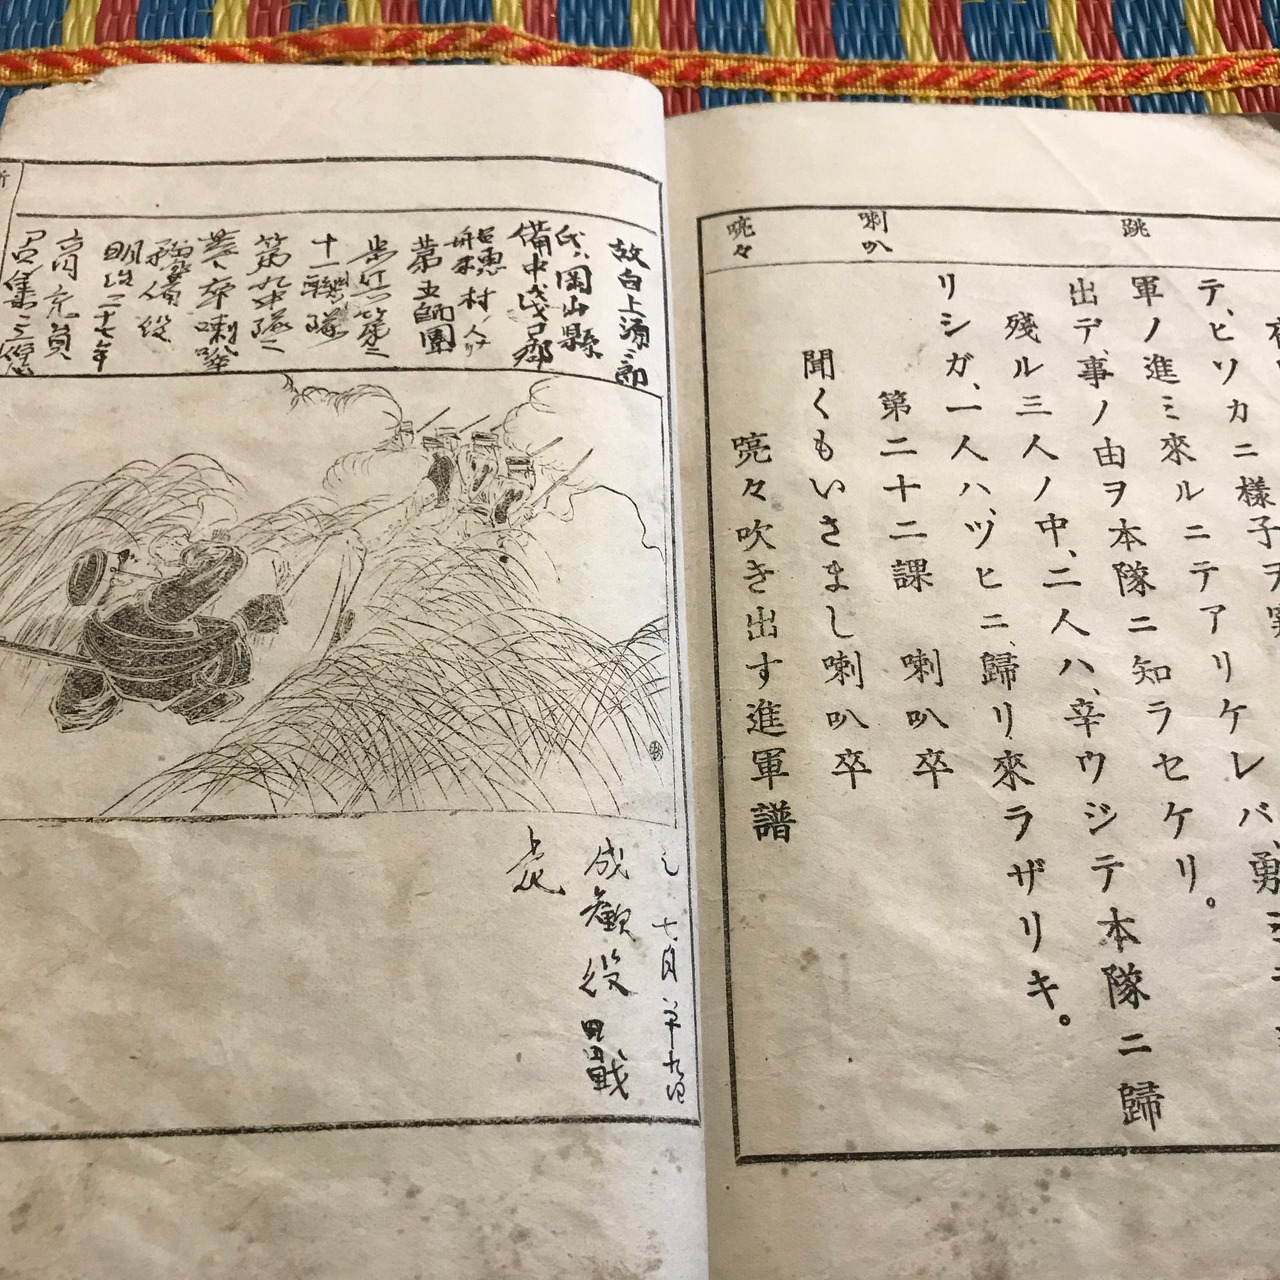 跳
喇叭
喨々
テ、ヒソカニ樣子ヲ
軍ノ進ミ來ルニテアリケレバ、勇
出デ、事ノ由ヲ本隊ニ知ラセケリ。
殘ル三人ノ中、二人ハ、辛ウジテ本隊ニ歸
リシガ、一人ハ、ツヒニ、歸リ來ラザリキ。
第二十二課 喇叭卒
聞くもいさまし喇叭卒
喨々吹き出す進軍譜
故白上源二郎
氏ハ岡山縣
備中淺口郡
船穗村ノ人
第五師團
歩兵第二
十一聯隊
第九中隊
喇叭
豫備役
明治二十七年
六月充員
召集
七月廿九日
成歡役